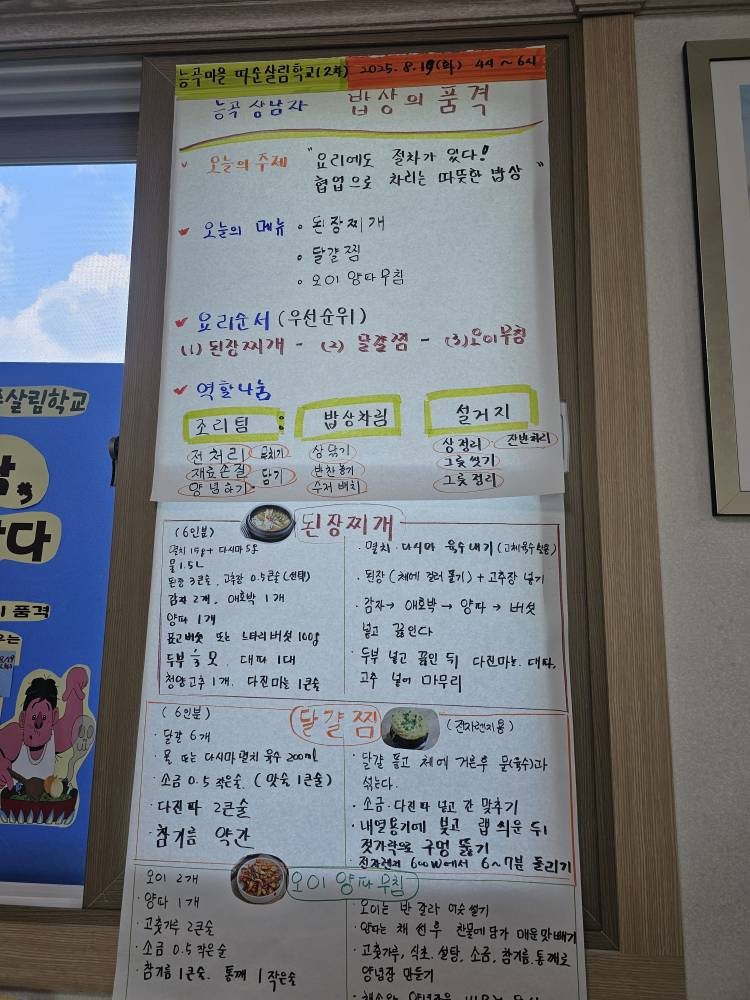 능곡마을 따순살림학교(2회) 2025. 8. 19(화) 4시~6시
능곡 상남자 밥상의 품격
오늘의 주제 "요리에도 절차가 있다!
협업으로 차리는 따뜻한 밥상"
오늘의 메뉴 • 된장찌개
• 달걀찜
• 오이양파무침
요리순서 (우선순위)
(1) 된장찌개 - (2) 달걀찜 - (3) 오이무침
역할나눔
조리팀 : 밥상차림 설거지
전처리 상닦기 상정리 잔반처리
재료손질 담기 반찬놓기 그릇씻기
양념하기 수저배치 그릇정리
된장찌개
(6인분)
멸치 15g + 다시마 5g
물 1.5L
된장 3큰술, 고추장 0.5큰술 (선택)
감자 2개, 애호박 1개
양파 1개
표고버섯 또는 느타리버섯 100g
두부 모, 대파 1대
청양고추 1개, 다진마늘 1큰술
· 멸치·다시마 육수내기 (고체육수 활용)
· 된장 (체에 걸러 풀기) + 고추장 넣기
· 감자→ 애호박 → 양파 → 버섯
넣고 끓인다
· 두부 넣고 끓인 뒤 다진마늘, 대파,
고추 넣어 마무리
달걀찜
(6인분)
· 달걀 6개
· 물 또는 다시마멸치 육수 200ml
· 소금 0.5 작은술, (맛술 1큰술)
· 다진파 2큰술
· 참기름 약간
(전자렌지용)
· 달걀 풀고 체에 거른후 물(육수)과
섞는다.
· 소금·다진파 넣고 간 맞추기
· 내열용기에 붓고 랩 씌운 뒤
젓가락으로 구멍 뚫기
· 전자렌지 600W에서 6~7분 돌리기
오이양파무침
오이 2개
· 양파 1개
· 고춧가루 2큰술
· 소금 0.5 작은술
· 참기름 1큰술, 통깨 1작은술
· 오이는 반 갈라 어슷썰기
· 양파는 채 썬후 찬물에 담가 매운맛 빼기
· 고춧가루, 식초, 설탕, 소금, 참기름, 통깨로
양념장 만들기
살림학교
다
품격